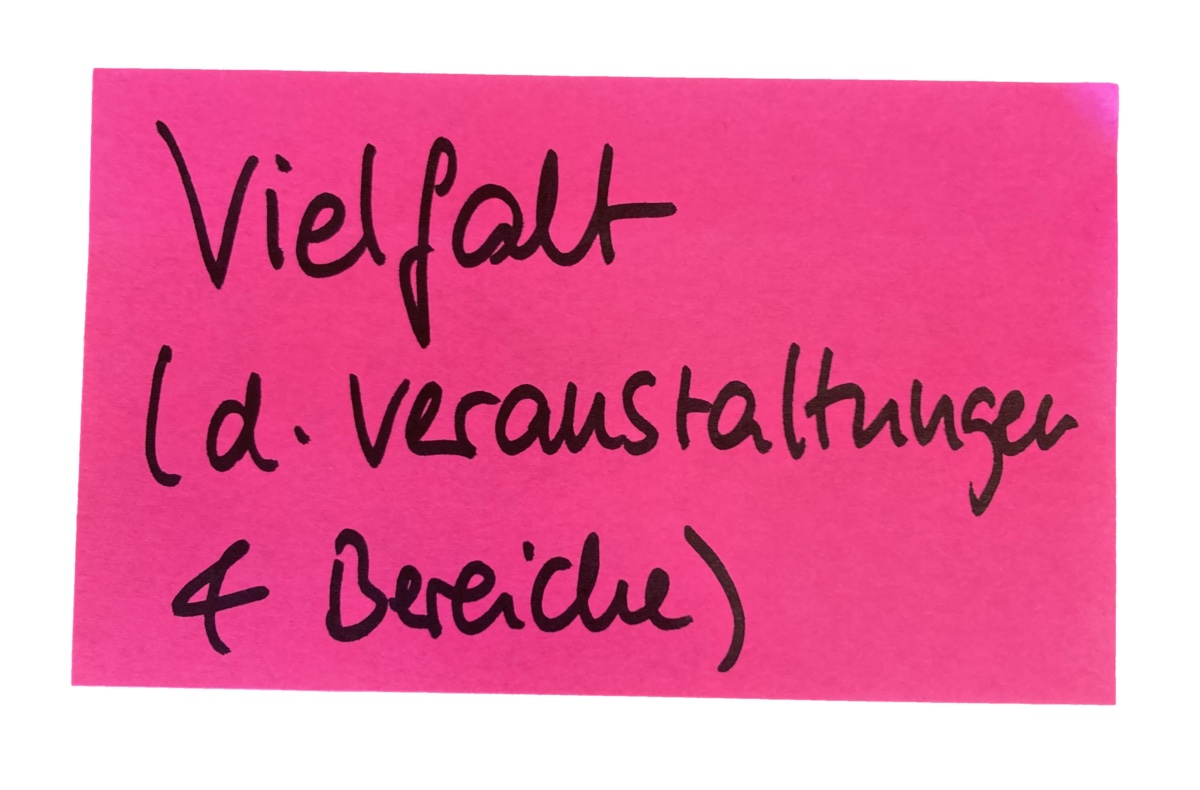 Vielfalt
(d. Veranstaltungen
& Bereiche)